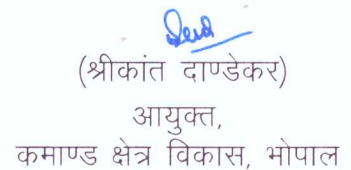 (श्रीकांत दाण्डेकर)
आयुक्त,
कमाण्ड क्षेत्र विकास, भोपाल